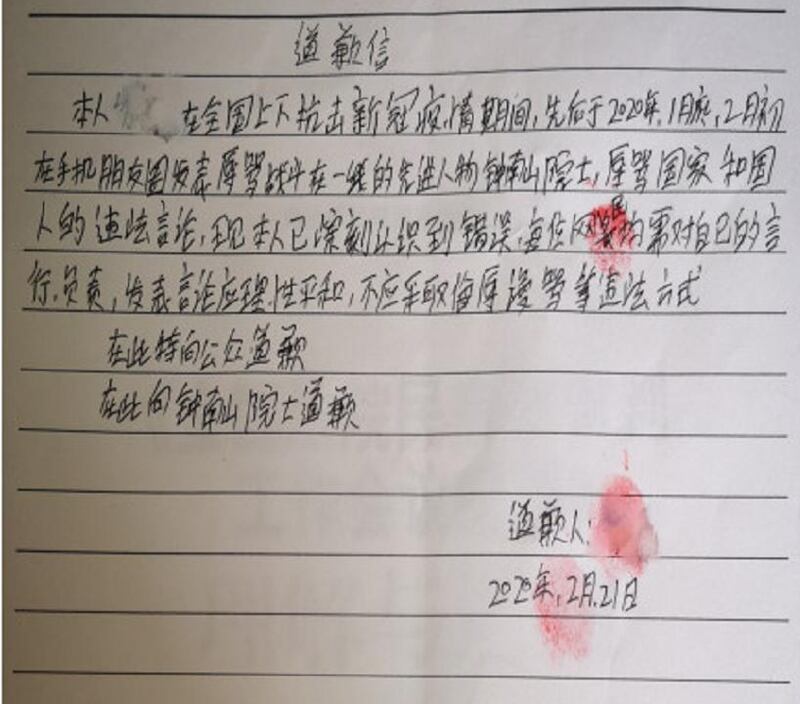 道歉信
本人 在全国上下抗击新冠疫情期间,先后于2020年,1月底,2月初
在手机朋友圈发表辱骂战斗在一线的先进人物钟南山院士,辱骂国家和国
人的违法言论,现本人已深刻认识到错误,每位网民均需对自己的言
行负责,发表言论应理性平和,不应采取侮辱谩骂等违法方式
在此特向公众道歉
在此向钟南山院士道歉
道歉人:
2020年,2月.21日